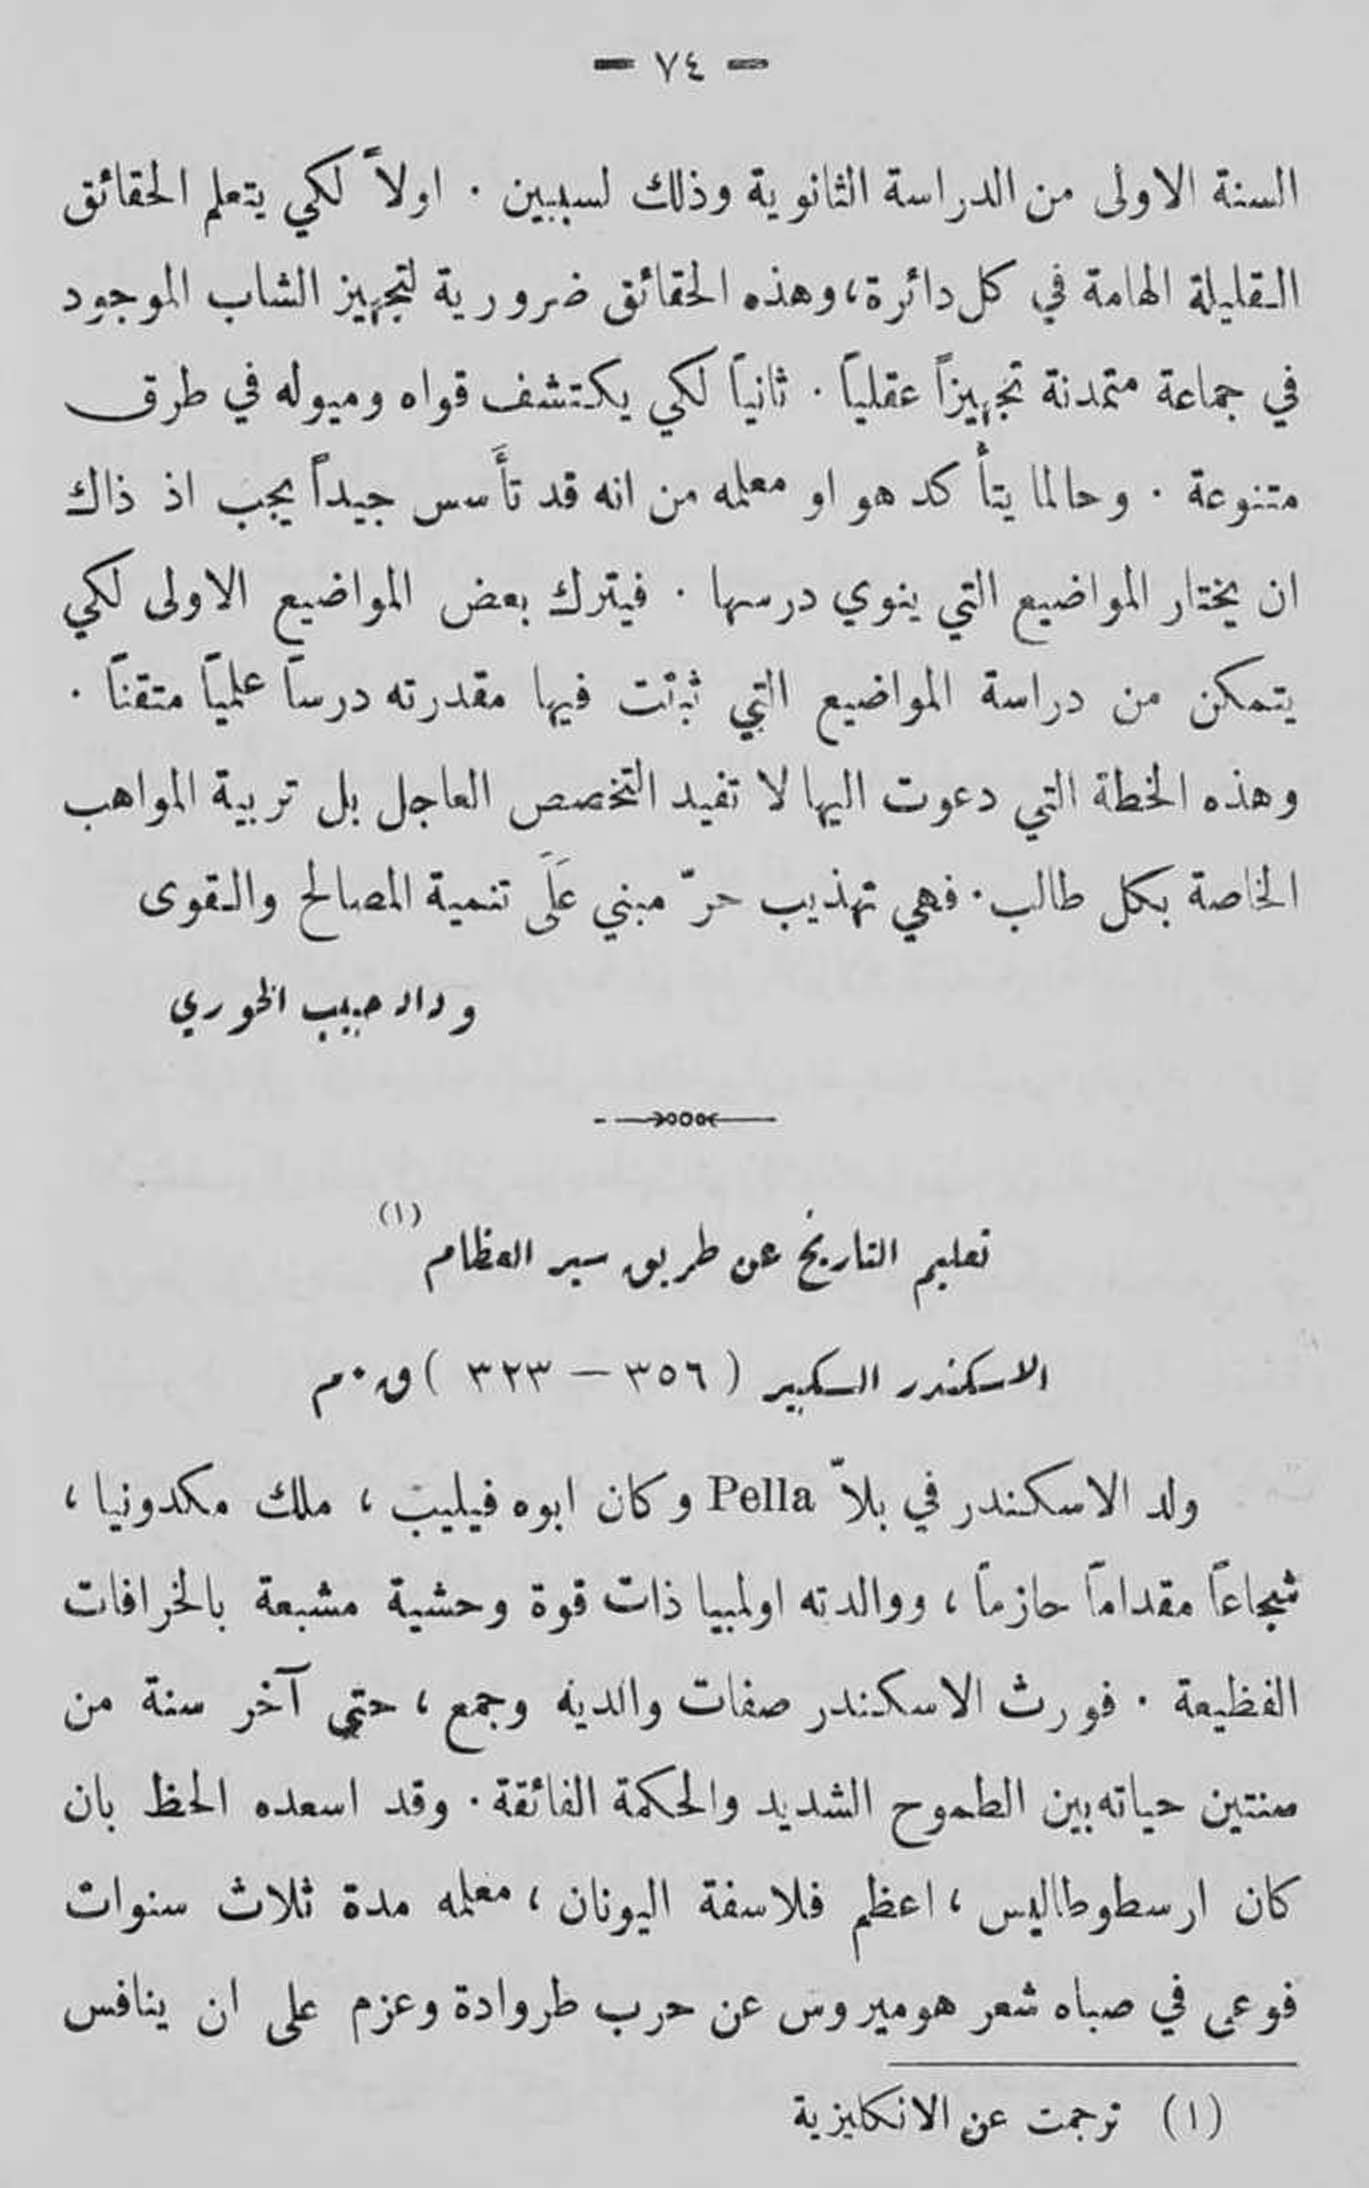 — ٧٤ —
السنة الاولى من الدراسة الثانوية وذلك لسببين . اولاً لكي يتعلم الحقائق
القليلة الهامة في كل دائرة ، وهذه الحقائق ضرورية لتجهيز الشاب الموجود
في جماعة متمدنة تجهيزاً عقلياً . ثانياً لكي يكتشف قواه وميوله في طرق
متنوعة . وحالما يتأكد هو او معلمه من انه قد تأَسس جيداً يجب اذ ذاك
ان يختار المواضيع التي ينوي درسها . فيترك بعض المواضيع الاولى لكي
يتمكن من دراسة المواضيع التي ثبتت فيها مقدرته درساً علمياً متقناً .
وهذه الخطة التي دعوت اليها لا تفيد التخصص العاجل بل تربية المواهب
الخاصة بكل طالب . فهي تهذيب حرّ مبني عَلَى تنمية المصالح والقوى
وداد حبيب الخوري
تعليم التاريخ عن طريق سير العظام (١)
الاسكندر الكبير ( ٣٥٦ — ٣٢٣ ) ق . م
ولد الاسكندر في بلاّ Pella وكان ابوه فيليب ، ملك مكدونيا ،
شجاعاً مقداماً حازماً ، ووالدته اولمبيا ذات قوة وحشية مشبعة بالخرافات
الفظيعة . فورث الاسكندر صفات والديه وجمع ، حتى آخر سنة من
سنتين حياته بين الطموح الشديد والحكمة الفائقة . وقد اسعده الحظ بان
كان ارسطوطاليس ، اعظم فلاسفة اليونان ، معلمه مدة ثلاث سنوات
فوعى في صباه شعر هوميروس عن حرب طروادة وعزم على ان ينافس
(١) ترجمت عن الانكليزية